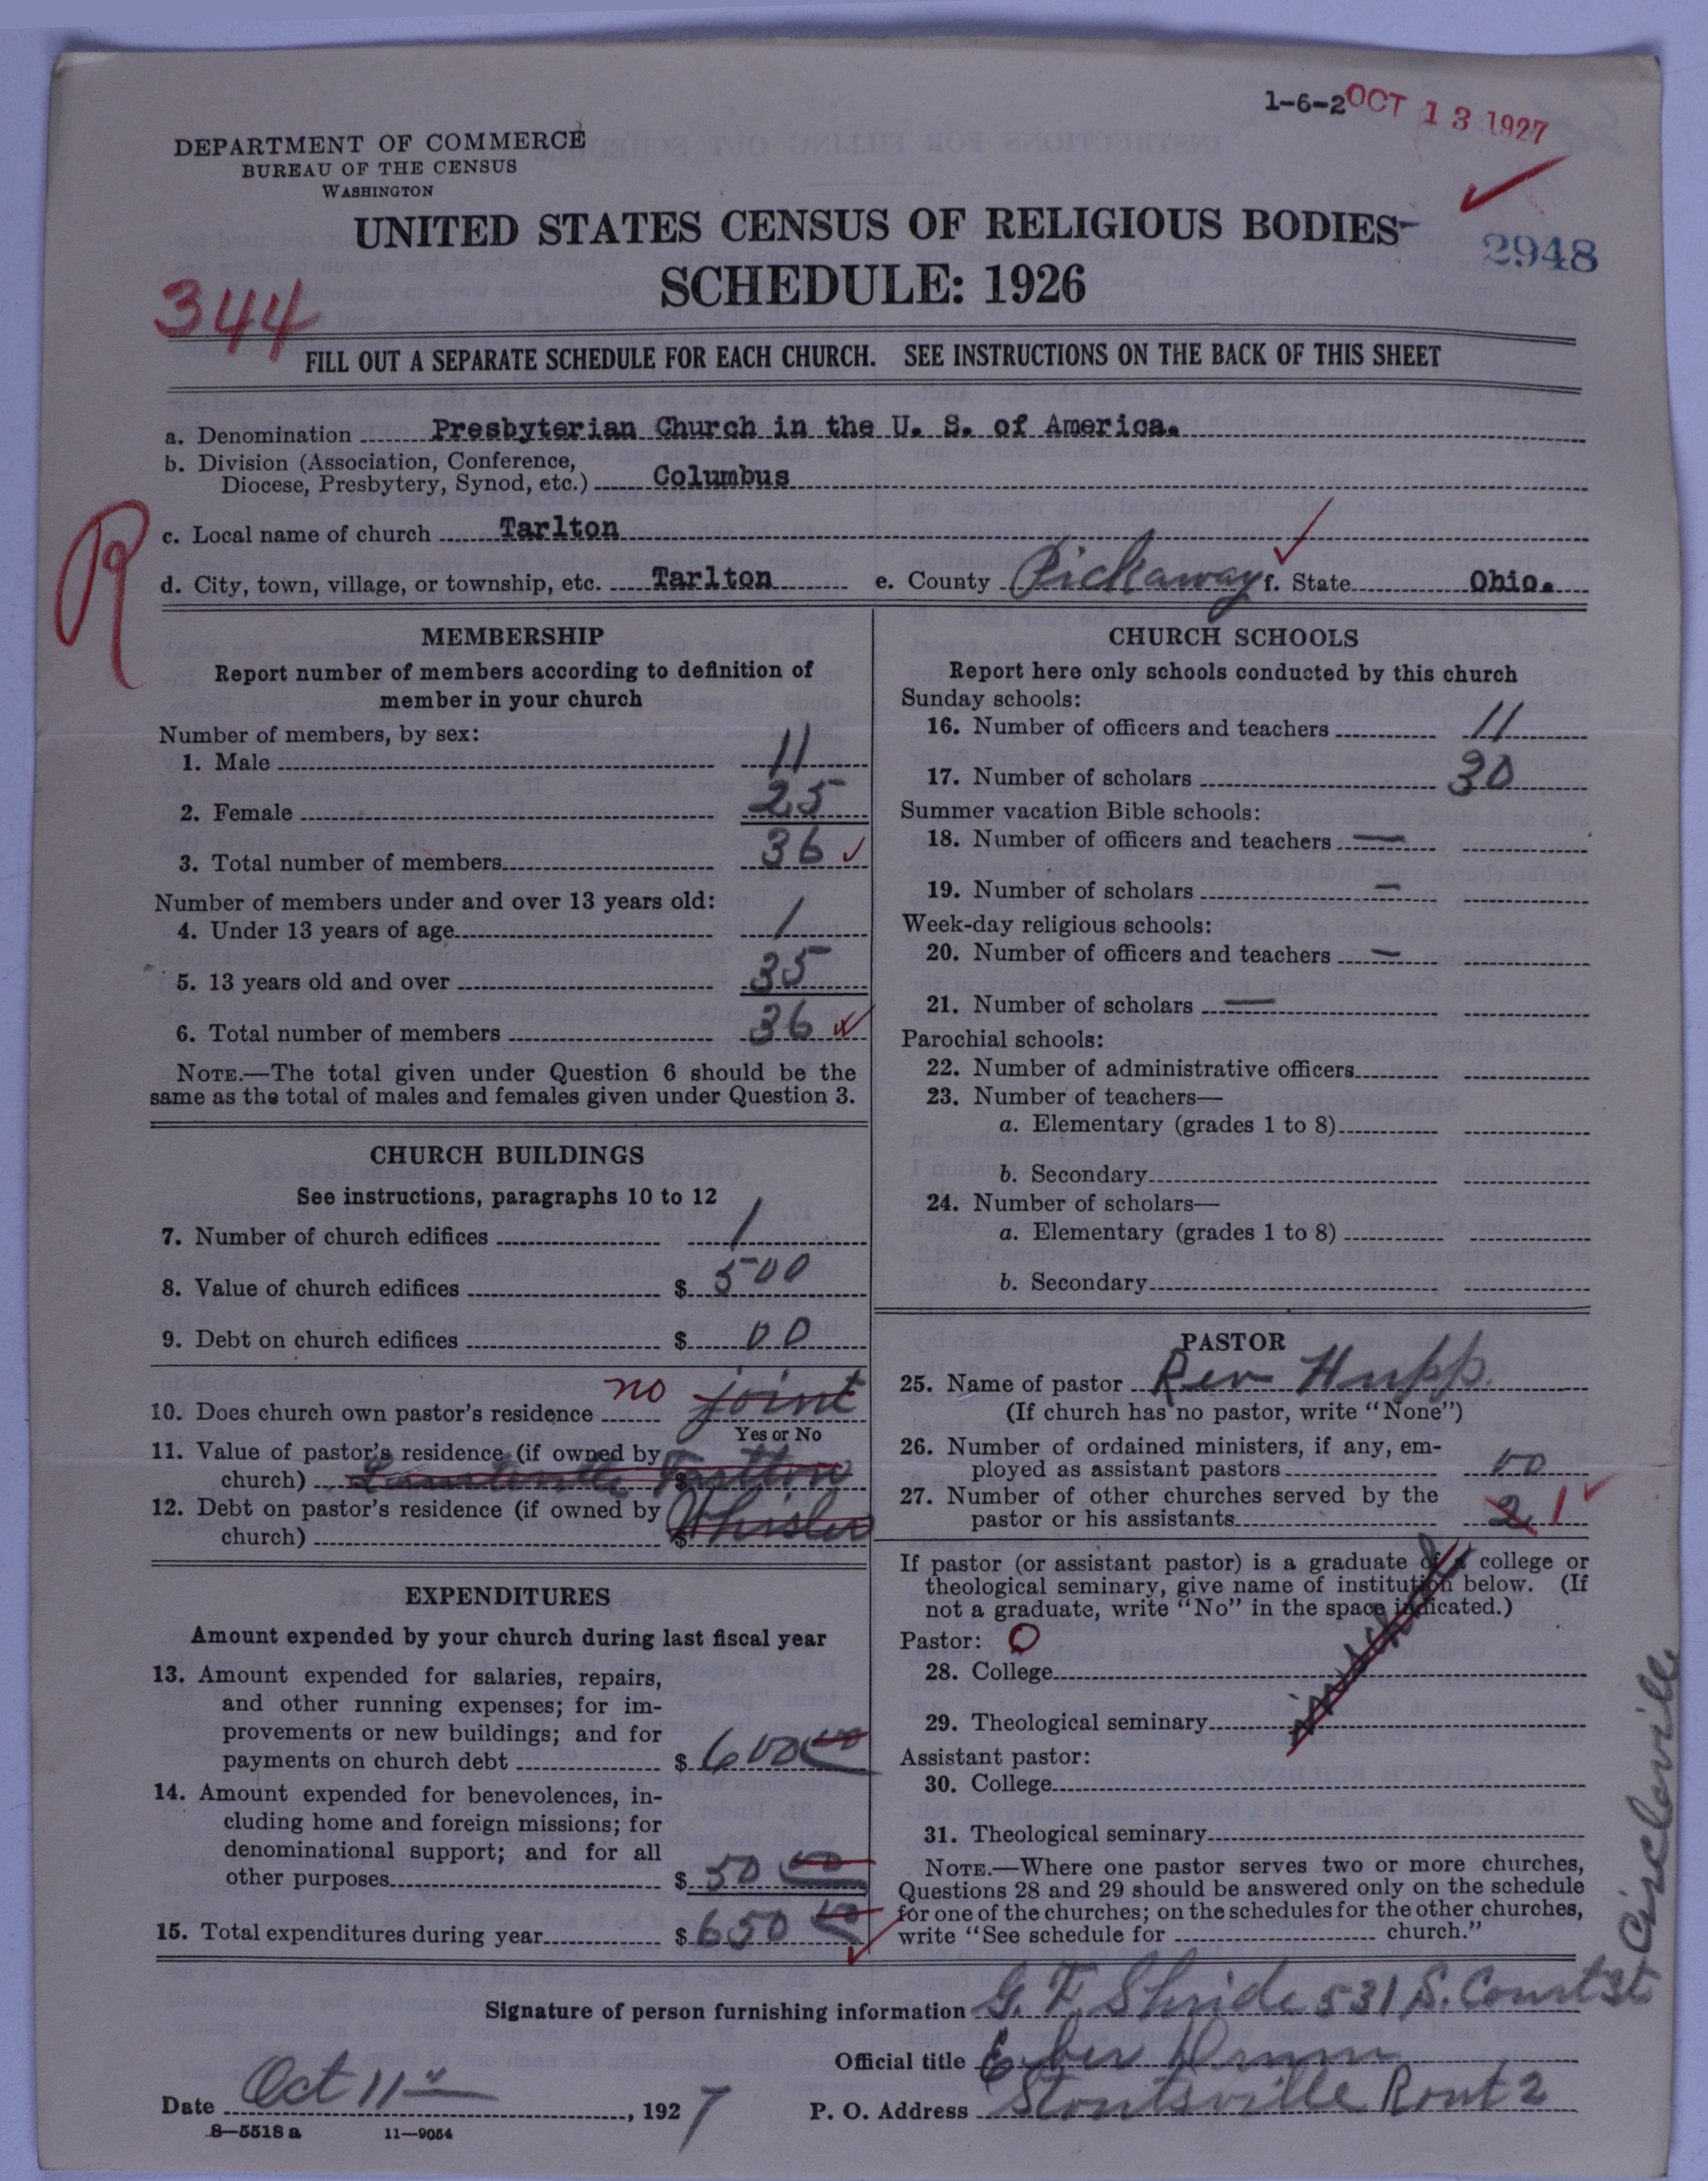 1-6-2 OCT 13 1927
DEPARTMENT OF COMMERCE
BUREAU OF THE CENSUS
WASHINGTON
UNITED STATES CENSUS OF RELIGIOUS BODIES
2948
SCHEDULE: 1926
344
FILL OUT A SEPARATE SCHEDULE FOR EACH CHURCH. SEE INSTRUCTIONS ON THE BACK OF THIS SHEET
a. Denomination Presbyterian Church in the U. S. of America.
b. Division (Association, Conference,
Diocese, Presbytery, Synod, etc.) Columbus
R
c. Local name of church Tarlton
d. City, town, village, or township, etc. Tarlton e. County Pickaway f. State Ohio.
MEMBERSHIP
Report number of members according to definition of
member in your church
Number of members, by sex:
1. Male 11
2. Female 25
3. Total number of members 36
Number of members under and over 13 years old:
4. Under 13 years of age 1
5. 13 years old and over 35
6. Total number of members 36
NOTE.—The total given under Question 6 should be the
same as the total of males and females given under Question 3.
CHURCH BUILDINGS
See instructions, paragraphs 10 to 12
7. Number of church edifices 1
8. Value of church edifices $ 500
9. Debt on church edifices $ 00
10. Does church own pastor's residence no joint
Yes or No
11. Value of pastor's residence (if owned by
church) $ Tarlton
12. Debt on pastor's residence (if owned by
church) $ Whisler
EXPENDITURES
Amount expended by your church during last fiscal year
13. Amount expended for salaries, repairs,
and other running expenses; for im-
provements or new buildings; and for
payments on church debt $ 600 00
14. Amount expended for benevolences, in-
cluding home and foreign missions; for
denominational support; and for all
other purposes $ 50 00
15. Total expenditures during year $ 650 00
CHURCH SCHOOLS
Report here only schools conducted by this church
Sunday schools:
16. Number of officers and teachers 11
17. Number of scholars 30
Summer vacation Bible schools:
18. Number of officers and teachers —
19. Number of scholars —
Week-day religious schools:
20. Number of officers and teachers —
21. Number of scholars —
Parochial schools:
22. Number of administrative officers
23. Number of teachers—
a. Elementary (grades 1 to 8)
b. Secondary
24. Number of scholars—
a. Elementary (grades 1 to 8)
b. Secondary
PASTOR
25. Name of pastor Rev Hupp.
(If church has no pastor, write "None")
26. Number of ordained ministers, if any, em-
ployed as assistant pastors 00
27. Number of other churches served by the
pastor or his assistants 2 1
If pastor (or assistant pastor) is a graduate of a college or
theological seminary, give name of institution below. (If
not a graduate, write "No" in the space indicated.)
Pastor: O
28. College
29. Theological seminary
Assistant pastor:
30. College
31. Theological seminary
NOTE.—Where one pastor serves two or more churches,
Questions 28 and 29 should be answered only on the schedule
for one of the churches; on the schedules for the other churches,
write "See schedule for church."
Signature of person furnishing information G. F. Shride 531 S. Court St
Circleville
Official title
Date Oct 11th, 1927 P. O. Address Stoutsville Rout 2
8—5518 a 11—9054